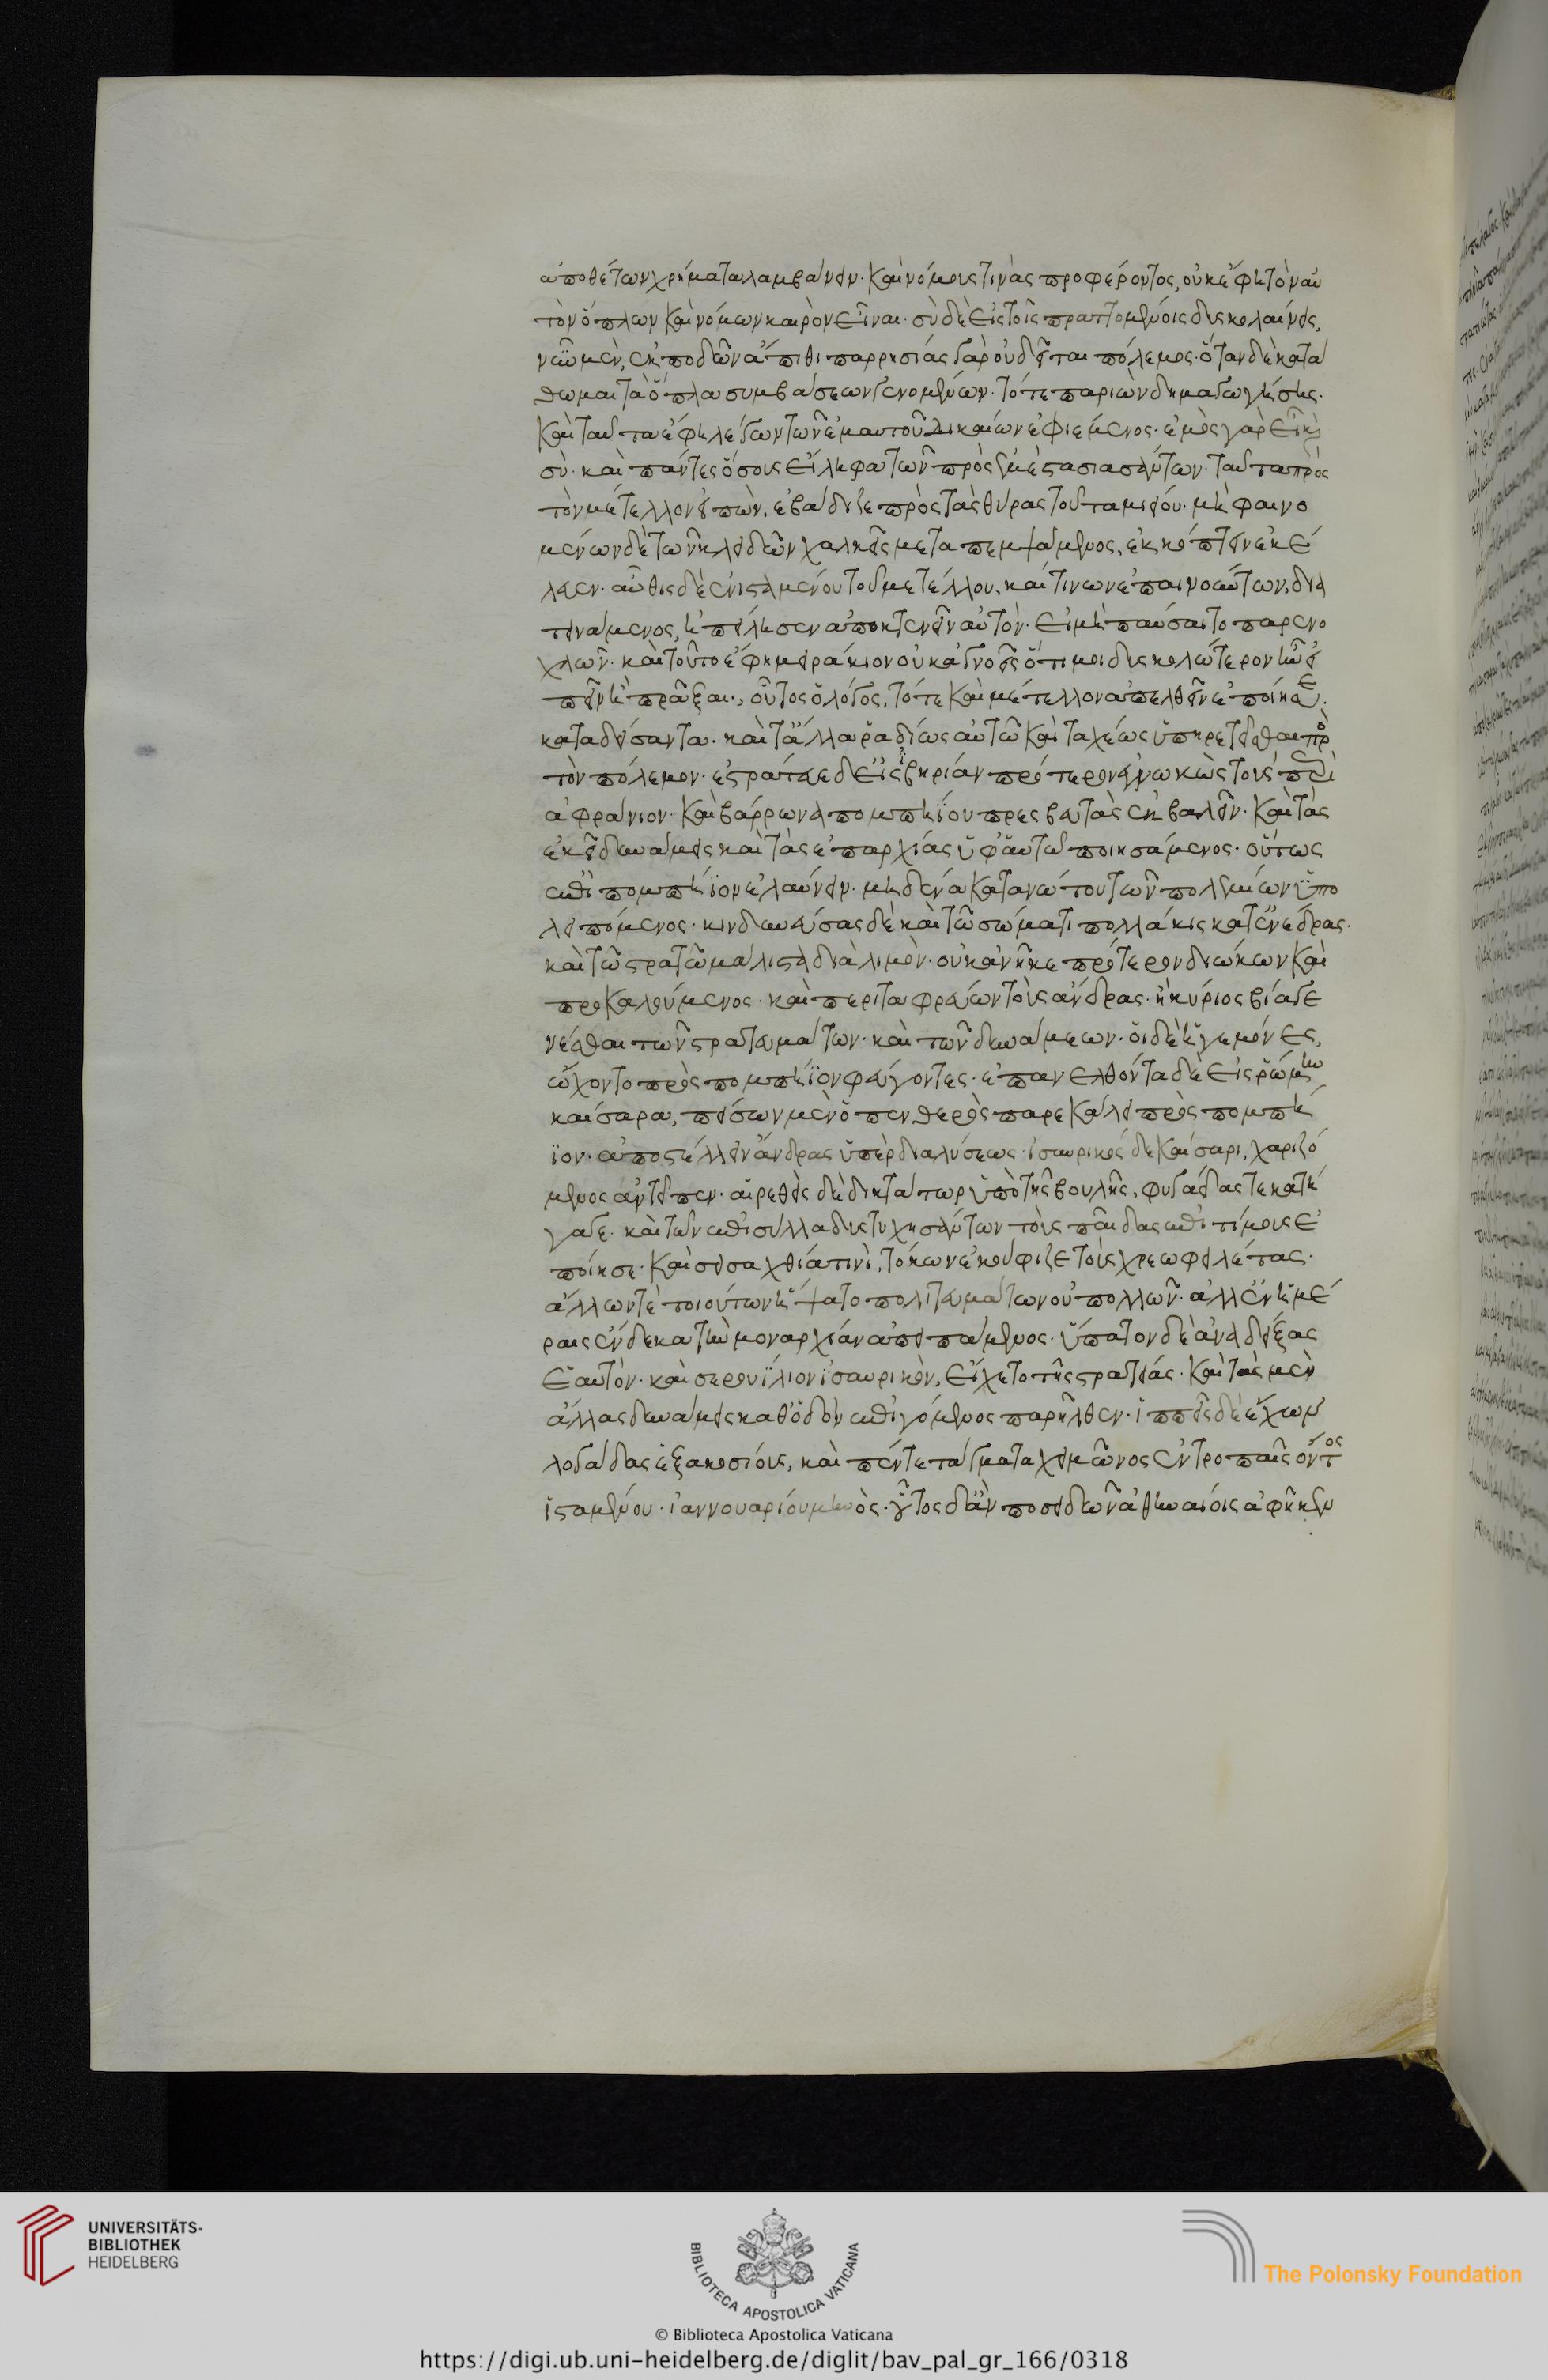 ἀποθέτων χρήματα λαμβάνειν· καὶ νόμους τινὰς προφέροντος, οὐκ ἔφη τὸν αὐ
τὸν ὅπλων καὶ νόμων καιρὸν εἶναι· σὺ δὲ εἰ τοῖς πραττομένοις δυσκολαίνεις,
νῦν μὲν, ἐκποδὼν ἄπιθι παρρησίας γὰρ οὐ δεῖται πόλεμος· ὅταν δὲ κατα
θῶμαι τὰ ὅπλα συμβάσεων γενομένων· τότε παριὼν δημαγωγήσεις·
καὶ ταῦτα ἔφη λέγων τῶν ἐμαυτοῦ δικαίων ἐφιέμενος· ἐμὸς γὰρ εἶ καὶ
σὺ· καὶ πάντες ὅσους εἴληφα τῶν πρὸς ἐμὲ στασιασάντων· ταῦτα πρὸς
τὸν μέτελλον εἰπὼν, ἐβάδιζε πρὸς τὰς θύρας τοῦ ταμιείου· μὴ φαινο
μένων δὲ τῶν κλειδῶν χαλκεῖς μεταπεμψάμενος, ἐκκόπτειν ἐκέ
λευεν· αὖθις δὲ ἐνισταμένου τοῦ μετέλλου, καί τινων ἐπαινούντων, δια
τεινάμενος, ἠπείλησεν ἀποκτενεῖν αὐτὸν· εἰ μὴ παύσαιτο παρενο
χλῶν· καὶ τοῦτο ἔφη μειράκιον οὐκ ἀγνοεῖς ὅτι μοι δυσκολώτερον ἦν εἰ
πεῖν ἢ πρᾶξαι· οὗτος ὁ λόγος, τότε καὶ μέτελλον ἀπελθεῖν ἐποίησε
καταδείσαντα· καὶ τἄλλα ῥαδίως αὐτῷ καὶ ταχέως ὑπηρετεῖσθαι πρὸς
τὸν πόλεμον· ἐστράτευσε δ' εἰς ἰβηρίαν πρότερον ἐγνωκὼς τοὺς περὶ
ἀφράνιον· καὶ βάρρωνα πομπηΐου πρεσβευτὰς ἐκβαλεῖν· καὶ τὰς
ἐκεῖ δυνάμεις καὶ τὰς ἐπαρχίας ὑφ' αὑτῷ ποιησάμενος· οὕτως
ἐπὶ πομπήϊον ἐλαύνειν· μηδένα κατα νώτου τῶν πολεμίων ὑπο
λειπόμενος· κινδυνεύσας δὲ καὶ τῷ σώματι πολλάκις κατ' ἐνέδρας·
καὶ τῷ στρατῷ μάλιστα διὰ λιμὸν· οὐκ ἀνῆκε πρότερον διώκων καὶ
προκαλούμενος· καὶ περιταφρεύων τοὺς ἄνδρας· ἢ κύριος βίᾳ γε
νέσθαι τῶν στρατευμάτων· καὶ τῶν δυνάμεων· οἱ δὲ ἡγεμόνες,
ᾤχοντο πρὸς πομπήϊον φεύγοντες· ἐπανελθόντα δὲ εἰς ῥώμην
καίσαρα, πείσων μὲν ὁ πενθερὸς παρεκάλει πρὸς πομπή
ϊον· ἀποστέλλειν ἄνδρας ὑπὲρ διαλύσεως· ἰσαυρικὸς δὲ καίσαρι, χαριζό
μενος ἀντεῖπεν· αἱρεθεὶς δὲ δικτάτωρ ὑπὸ τῆς βουλῆς, φυγάδας τε κατή
γαγε· καὶ τῶν ἐπὶ σύλλα δυστυχησάντων τοὺς παῖδας ἐπιτίμους ἐ
ποίησε· καὶ σεισαχθίᾳ τινὶ, τόκων ἐκούφιζε τοὺς χρεωφειλέτας·
ἄλλων τὲ τοιούτων ἥψατο πολιτευμάτων οὐ πολλῶν· ἀλλ' ἐν ἡμέ
ραις ἕνδεκα τὴν μοναρχίαν ἀπειπάμενος· ὕπατον δὲ ἀναδείξας
ἑαυτὸν· καὶ σερουΐλιον ἰσαυρικὸν, εἴχετο τῆς στρατείας· καὶ τὰς μὲν
ἄλλας δυνάμεις καθ' ὁδὸν ἐπιγόμενος παρῆλθεν· ἱππεῖς δὲ ἔχων
λογάδας ἑξακοσίους, καὶ πέντε τάγματα χειμῶνος ἐν τροπαῖς ὄντος
ἱσταμένου· ἰαννουαρίου μηνὸς· οὗτος δ' ἂν ποσειδεὼν ἀθηναίοις ἀφῆκεν
UNIVERSITÄTS-
BIBLIOTHEK
HEIDELBERG
BIBLIOTECA APOSTOLICA VATICANA
The Polonsky Foundation
© Biblioteca Apostolica Vaticana
https://digi.ub.uni-heidelberg.de/diglit/bav_pal_gr_166/0318